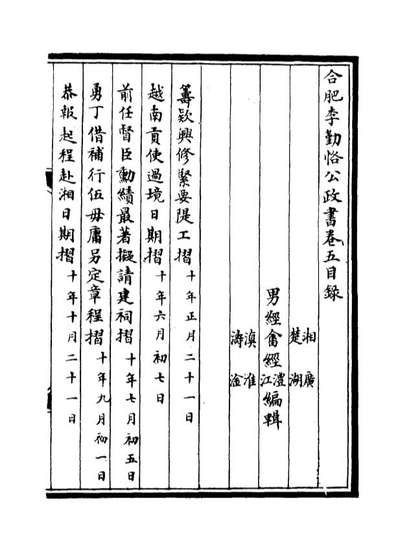 合肥李勤恪公政書卷五目錄
湘 廣
楚 湖
男經畬經澧江編輯
滇 淮
濤 淦
籌欵興修緊要隄工摺 十年正月二十一日
越南貢使過境日期摺 十年六月初七日
前任督臣勳績最著擬請建祠摺 十年七月初五日
勇丁借補行伍毋庸另定章程摺 十年九月初一日
恭報起程赴湘日期摺 十年十月二十一日